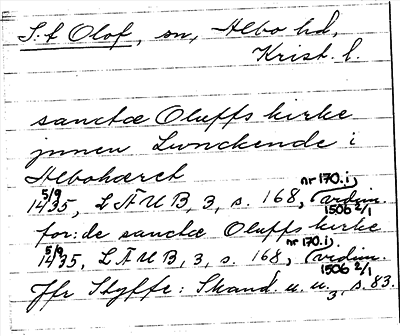 S:t Olof, sn, Albo hd,
Krist. l.
sanctæ Oluffs kirke
jnnen Lunckende i
Albohæret
14 5/9 35, LÄUB, 3, s. 168, nr 170.i, (vidim. 1506 2/1
for:de sanctæ Oluffs kirke
14 5/9 35, LÄUB, 3, s. 168, nr 170.i, (vidim. 1506 2/1
Jfr Styffe: Skand. u. u.3, s. 83.